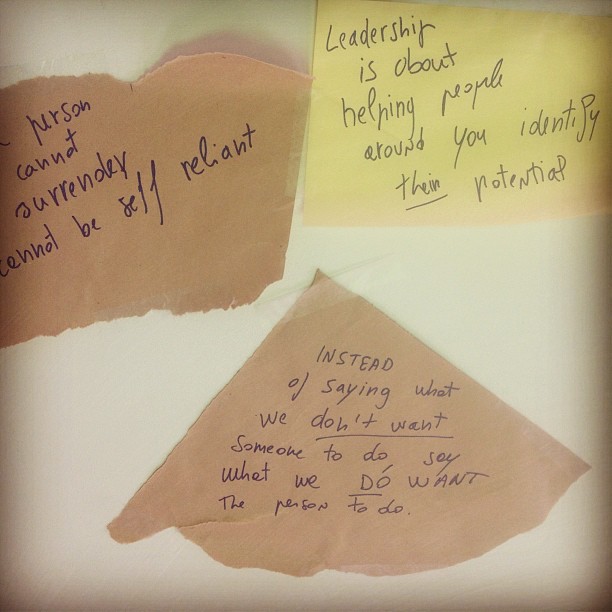 person
cannot
surrender
cannot be self reliant
Leadership
is about
helping people
around you identify
their potential
INSTEAD
of saying what
we don't want
Someone to do say
what we DO WANT
The person to do.